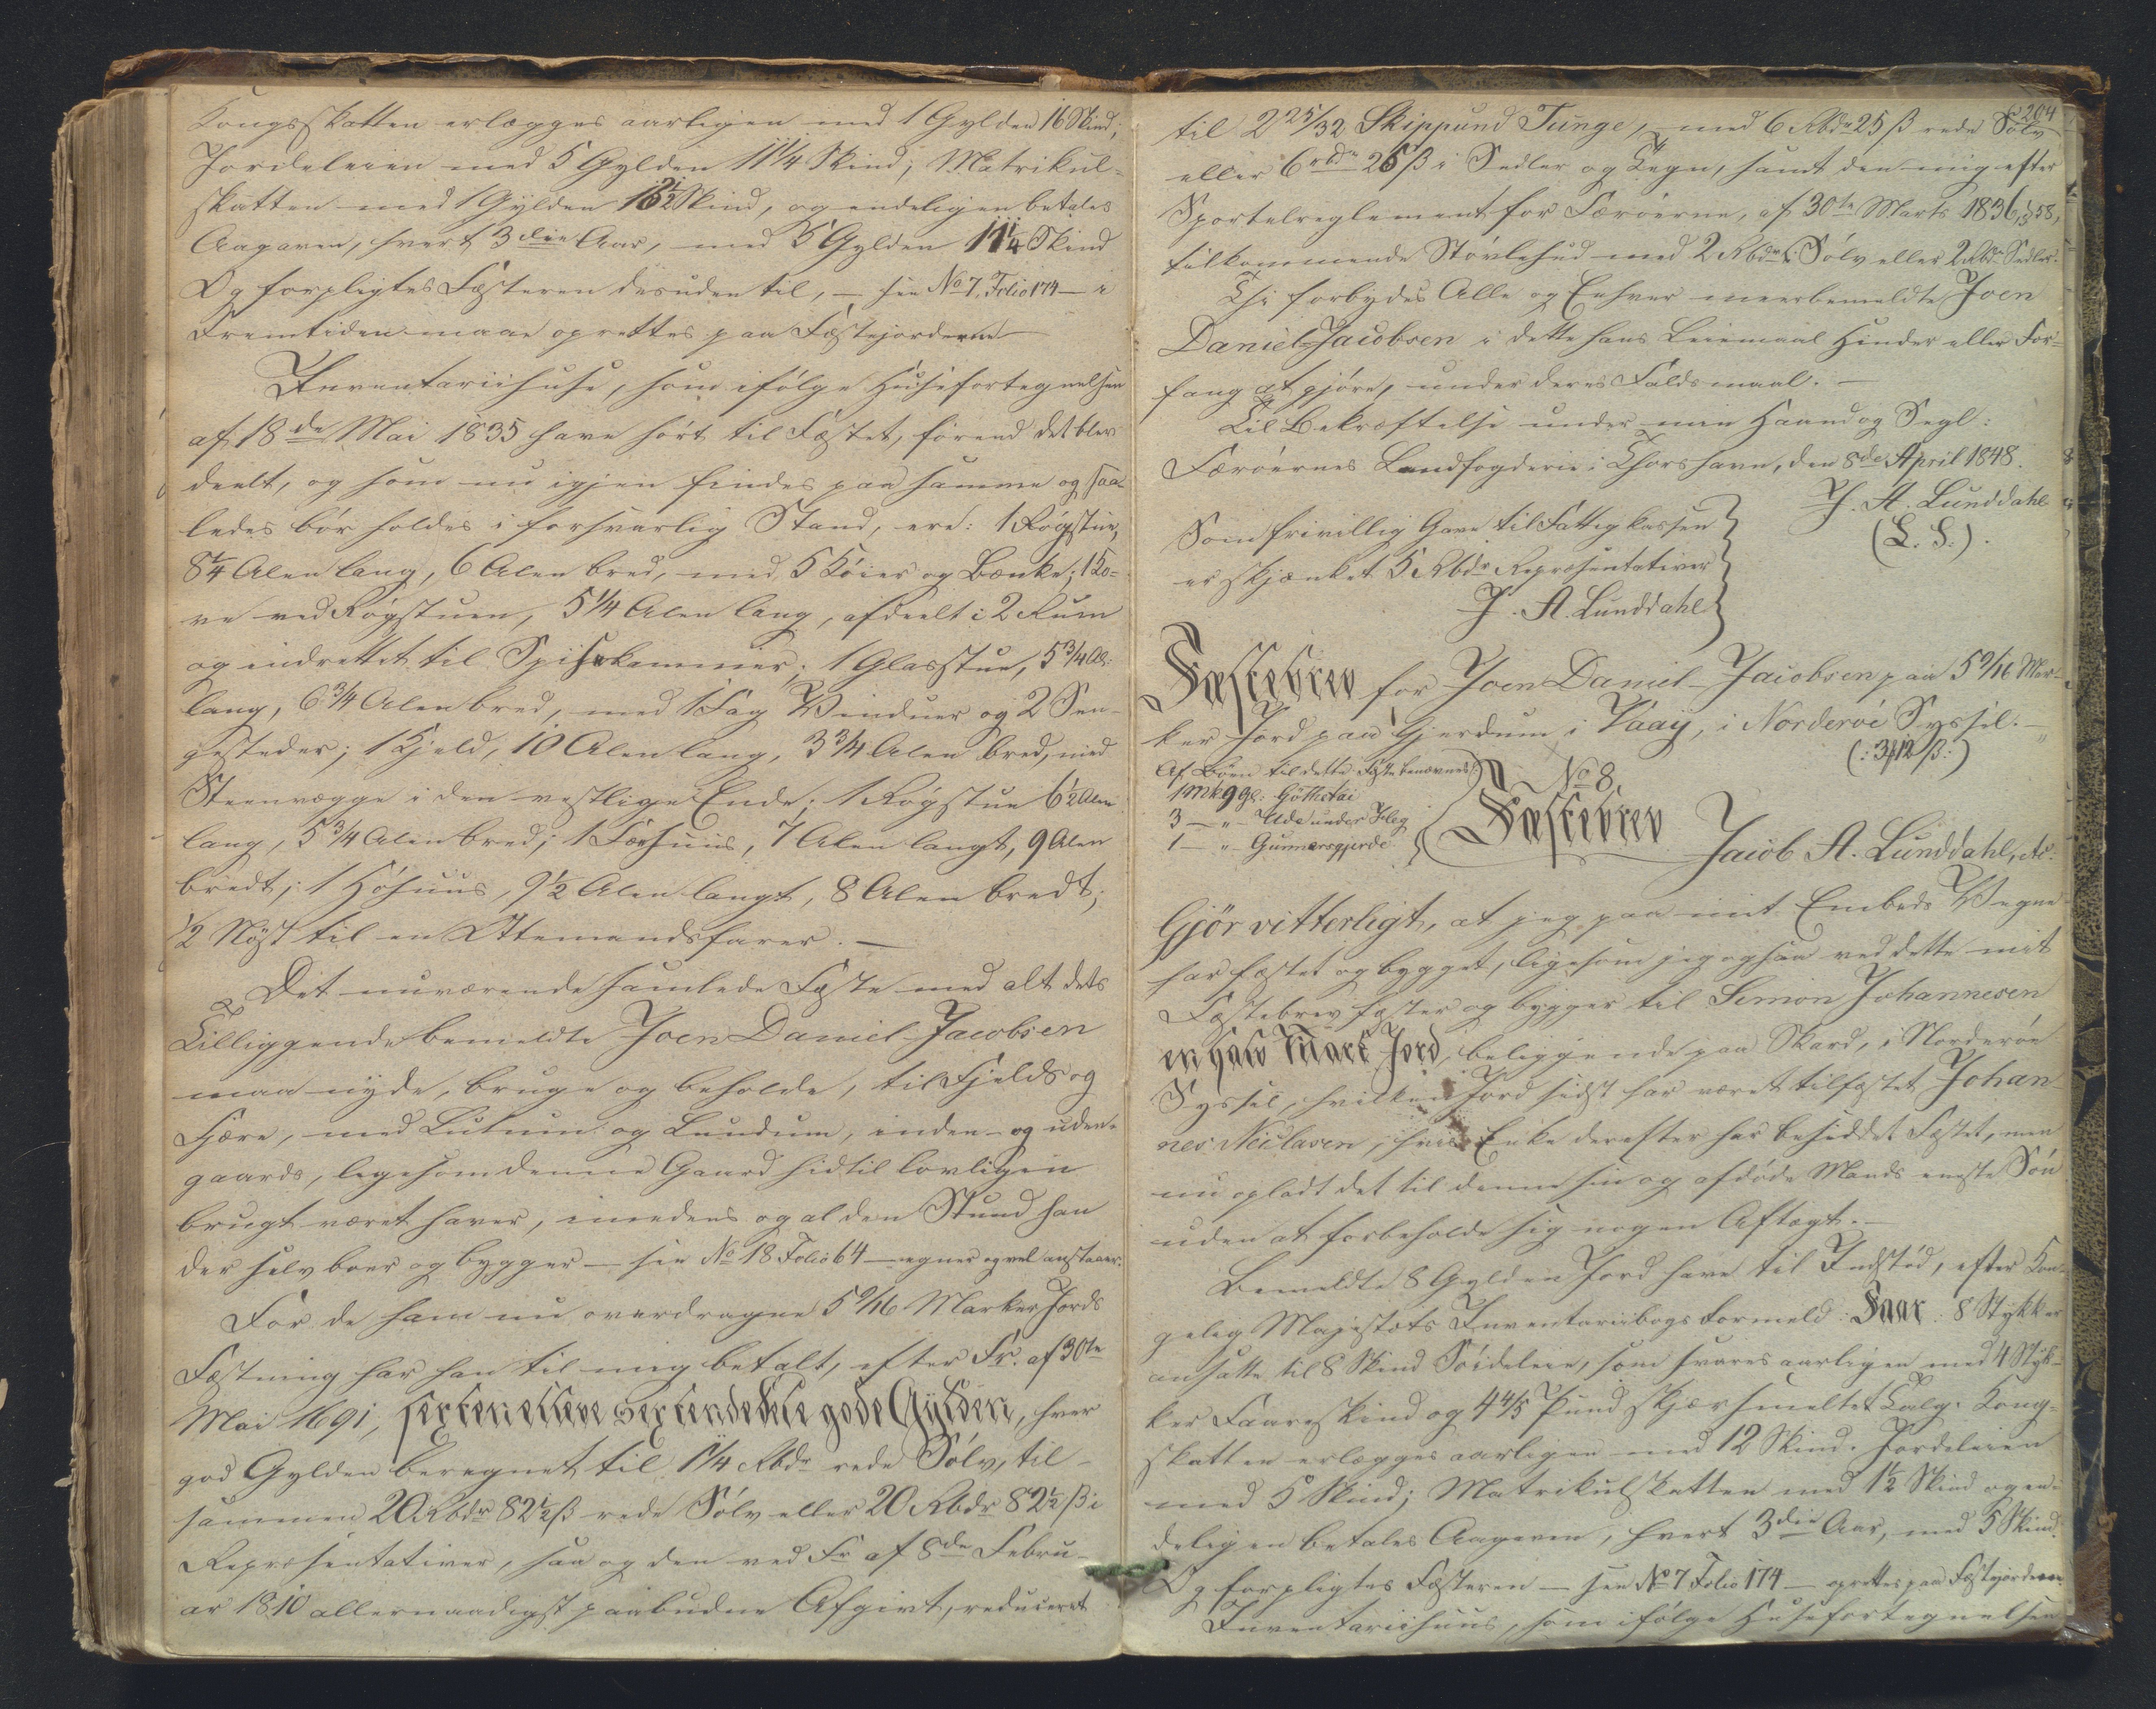 Kongsskatten erlægges aarligen med 1 Gylden 16 Skind;
Jordeleien med 5 Gylden 11 1/4 Skind; Matrikul-
skatten med 1 Gylden 13 1/2 Skind, og endeligen betales
Aagaven, hvert 3die Aar, med 5 Gylden 11 1/4 Skind
Og forpligtes Fæsteren desuden til, — see No 7, Folio 174 — i
Fremtiden maae oprettes paa Fæstejorderne
Inventariihuse, som ifølge Huusefortegnelsen
af 18de Mai 1835 have hørt til Fæstet, førend det blev
deelt, og som nu igjen findes paa samme og saa-
ledes bør holdes i forsvarlig Stand, ere: 1 Røgstue,
8 1/4 Alen lang, 6 Alen bred, med 5 Køier og Bænke; 1 Ko-
ve ved Røgstuen, 5 1/4 Alen lang, afdeelt i 2 Rum
og indrettet til Spisekammer; 1 Glasstue, 5 3/4 Al:
lang, 6 3/4 Alen bred, med 1 Fag Vinduer og 2 Sen-
gesteder; 1 Hjeld, 10 Alen lang, 3 3/4 Alen bred, med
Steenvægge i den vestlige Ende; 1 Røgstue 6 1/2 Alen
lang, 5 3/4 Alen bred; 1 Fæehuus, 7 Alen langt, 9 Alen
bredt; 1 Höhuus, 9 1/2 Alen langt, 8 Alen bredt;
1/2 Nöst til en Ottemandsfarer. —
Det nuværende samlede Fæste med alt dets
Tilliggende bemeldte Joen Daniel Jacobsen
maa nyde, bruge og beholde, til Fjelds og
Fjære, med Lutum og Lundum, inden- og uden-
gaards, ligesom denne Gaard hidtil lovligen
brugt været haver, imedens og al den Stund han
der selv boer og bygger — see No 18 Folio 64 — egner og vel anstaaer.
For de ham nu overdragne 5 9/16 Marker Jords
Fæstning har han til mig betalt, efter Fr. af 30te
Mai 1691, sexten elleve sextendedele gode Gylden, hver
god Gylden beregnet til 1 1/4 Rbdr rede Sølv, til-
sammen 20 Rbdr 82 1/2 ß rede Sølv eller 20 Rbdr 82 1/2 ß i
Repræsentativer, saa og den ved Fr af 8de Febru-
ar 1810 allernaadigst paabudne Afgivt, reduceret
204
til 2 25/32 Skippund Tunge, med 6 Rbdr 25 ß rede Sølv
eller 6 rbdr 26 ß i Sedler og Tegn, samt den mig efter
Sportelreglement for Færøerne, af 30te Marts 1836, § 58,
tilkommende Støvlehud med 2 Rbdr Sølv eller 2 Rbdr Sedler.
Thi forbydes Alle og Enhver meerbemeldte Joen
Daniel Jacobsen i dette hans Leiemaal Hinder eller For-
fang at gjöre, under deres Faldsmaal. —
Til Bekræftelse under min Haand og Segl:
Færøernes Landfogderie i Thorshavn, den 8de April 1848.
J. A. Lunddahl
(L. S.).
Som frivillig Gave til Fattigkassen
er skjænket 5 Rbdr Repræsentativer
J. A. Lunddahl
Fæstebrev for Joen Daniel Jacobsen paa 5 9/16 Mar-
ker Jord paa Gjerdum i Vaag, i Norderöe Syssel. —
(: 3 # 12 ß :)
Af Böen til dette Fæste benævnes:
1 Mk 9 gl: Göthstai
3 — " — Uda under Jleg
1 — " — Gunnarsgjerde
No 8.
Fæstebrev
Jacob A. Lunddahl, etc.
Gjör vitterligt, at jeg paa mit Embeds Vegne
har fæstet og bygget, ligesom jeg ogsaa ved dette mit
Fæstebrev fæster og bygger til Simon Johannesen
en halv Mark Jord, beliggende paa Skard, i Norderöe
Syssel, hvilken Jord sidst har været tilfæstet Johan-
nes Niclasen, hvis Enke derefter har besiddet Fæstet, men
nu opladt det til denne sin og afdøde Mands eneste Sön
uden at forbeholde sig nogen Aftægt. —
Bemeldte 8 Gylden Jord have til Indstöd, efter Kon-
gelig Majestæts Inventariibogs Formeld: Faar: 8 Stykker
ansatte til 8 Skind Söideleie, som svares aarligen med 4 Styk-
ker Faareskind og 4 4/5 Pund skjærsmeltet Talg. Kong-
skatten erlægges aarligen med 12 Skind. Jordeleien
med 5 Skind; Matrikulskatten med 1 1/2 Skind og en-
deligen betales Aagaven, hvert 3die Aar, med 5 Skind.
Og forpligtes Fæsteren — see No 7 Folio 174 — oprettes paa Fæstejorderne.
Inventariihuus, som ifölge Huusefortegnelsen